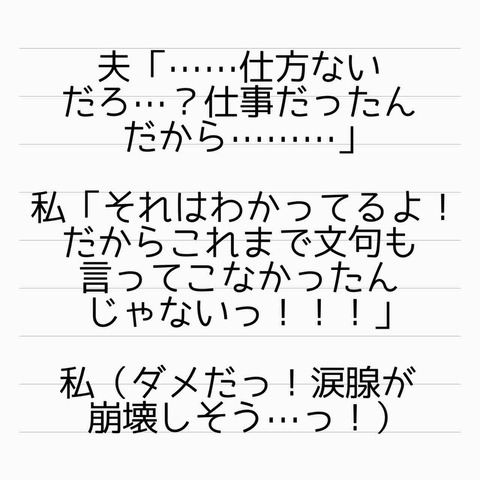 夫「……仕方ない
だろ…？仕事だったん
だから………」
私「それはわかってるよ！
だからこれまで文句も
言ってこなかったん
じゃないっ！！！」
私（ダメだっ！涙腺が
崩壊しそう…っ！）